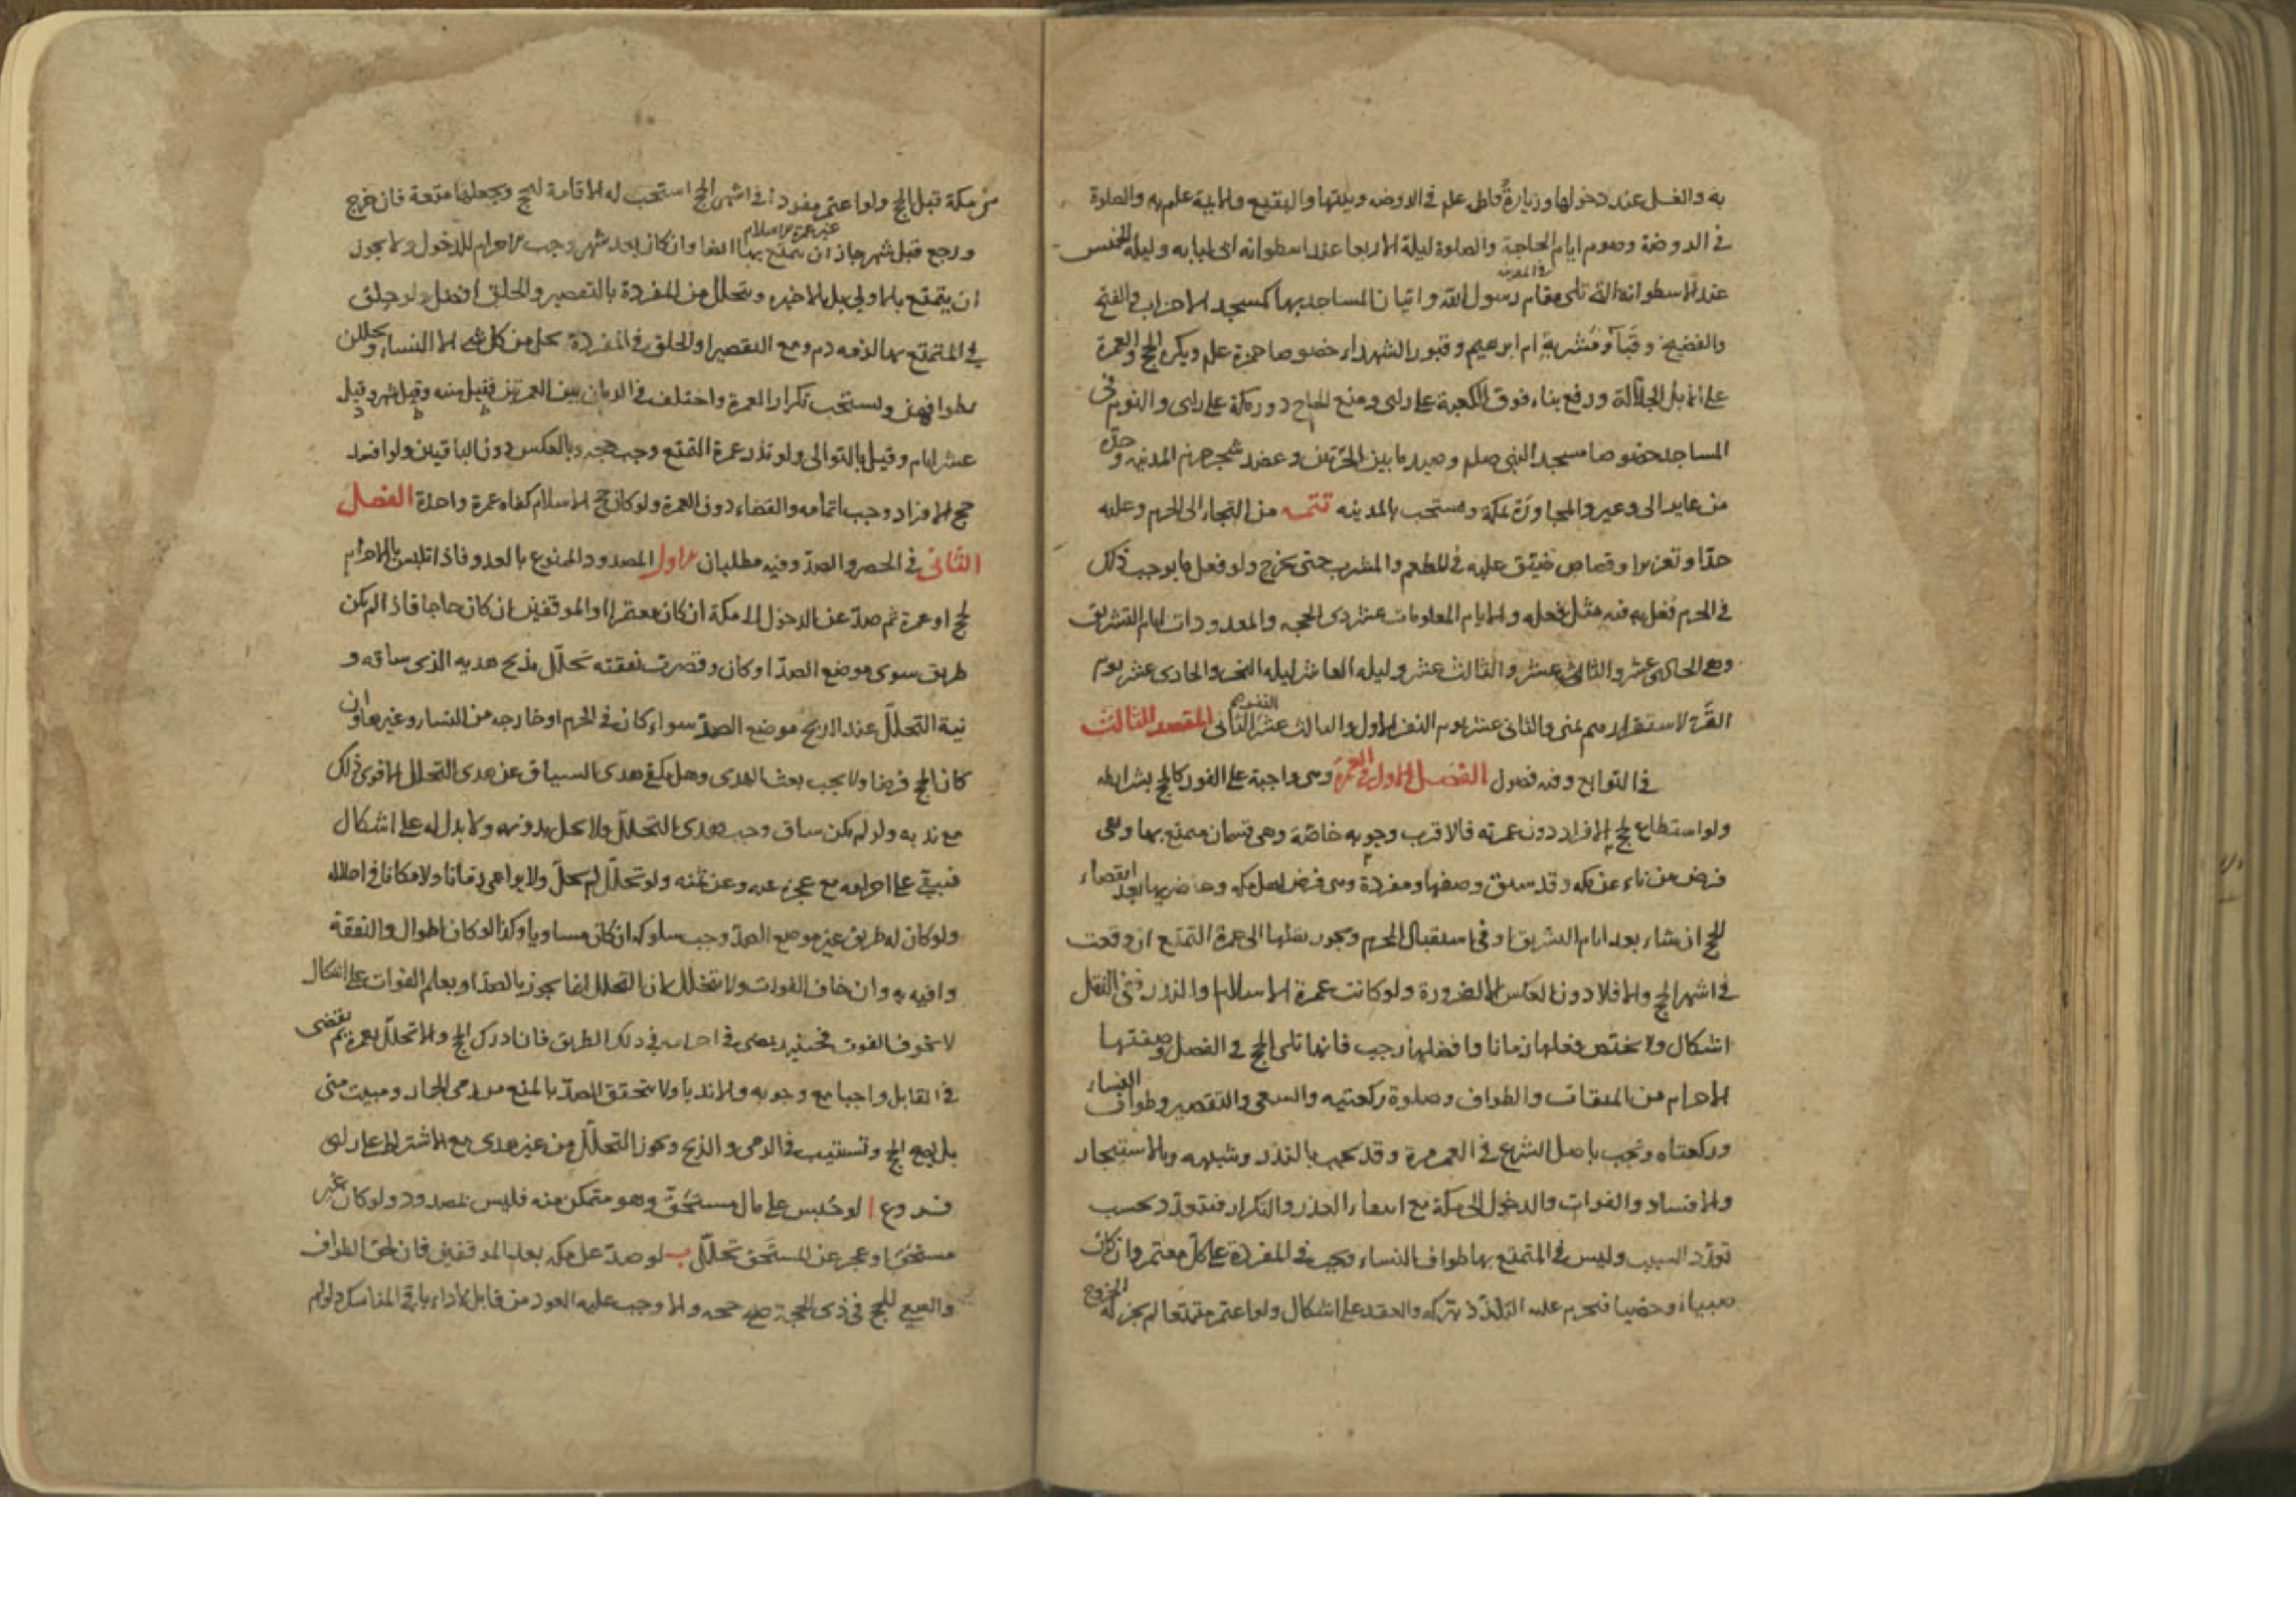 به والغسل عند دخولها وزيارة فاطمة علم في الروضة وبيتها والبقيع والايمة علم به والصلوة
في الروضة وصوم ايام الحاجة والصلوة ليلة الاربعا عند اسطوانه ابى لبابه وليلة الخميس
عند الاسطوانة التى تلى مقام رسول الله واتيان المساجد بها كمسجد الاحزاب والفتح
في المدينه
والفضيخ وقبا ومشربة ام ابرهيم وقبور الشهداء خصوصا حمزة علم ويكره الحج والعمرة
على الابل الجلالة ورفع بناء فوق الكعبة على راى ومنع الحاج دور مكة على راى والنوم فى
المساجد خصوصا مسجد النبى صلم وصيد ما بين الحرتين وعضد شجر حرم المدينه وحده
من عاير الى وعير والمجاورة بمكة ويستحب بالمدينه تتمه من التجاء الى الحرم وعليه
حد او تعزير او قصاص ضيق عليه في المطعم والمشرب حتى يخرج ولو فعل ما يوجب ذلك
في الحرم فعل به فيه مثل فعله والايام المعلومات عشر ذى الحجه والمعدودات ايام التشريق
وهى الحادى عشر والثانى عشر والثالث عشر وليله العاشر ليله النحر والحادى عشر يوم
القر لاستقرارهم بمنى والثانى عشر يوم النفر الاول والثالث عشر الثانى المقصد الثالث
في التوابع وفيه فصول الفصل الاول في العمرة وهى واجبة على الفور كالحج بشرايطه
ولو استطاع لحج الافراد دون عمرته فالاقرب وجوبه خاصة وهى قسمان متمتع بها وهى
فرض من ناء عن مكه وقد سبق وصفها ومفردة وهى فرض اهل مكه وحاضريها بعد انقضاء
الحج ان شاء بعد ايام التشريق او في استقبال المحرم ويجوز نقلها الى عمرة التمتع ان وقعت
في اشهر الحج والا فلا دون العكس الا لضرورة ولو كانت عمرة الاسلام والنذر ففى النقل
اشكال ولا يختص فعلها زمانا وافضلها رجب فانها تلى الحج في الفضل وصفتها
الاحرام من الميقات والطواف وصلوة ركعتيه والسعى والتقصير وطواف النساء
وركعتاه وتجب باصل الشرع في العمر مرة وقد تجب بالنذر وشبهه وبالاستيجار
والافساد والفوات والدخول الى مكة مع انتفاء العذر والتكرار فتتعدد بحسب
تعدد السبب وليس في المتمتع بها طواف النساء ويجب في المفردة على كل معتمر وان كان
صبيا او خصيا فيحرم عليه التلذذ بتركه والعقد على اشكال ولو اعتمر متمتعا لم يجز له الخروج
من مكة قبل الحج ولو اعتمر مفردا في اشهر الحج استحب له الاقامة لحج ويجعلها متعة فان خرج
غير عمرة الاسلام
ورجع قبل شهر جاز ان يتمتع بها ايضا وان كان بعد شهر وجب الاحرام للدخول ولا يجوز
ان يتمتع بالاولى بل بالاخيره ويتحلل من المفردة بالتقصير والحلق افضل ولو حلق
في المتمتع بها لزمه دم ومع التقصير او الحلق في المفردة يحل من كل شى الا النساء ويحللن
بطوافهن ويستحب تكرار العمرة واختلف في الزمان بين العمرتين فقيل سنه وقيل شهر وقيل
عشر ايام وقيل بالتوالى ولو نذر عمرة التمتع وجب حجه وبالعكس دون الباقيين ولو افسد
حج الافراد وجب اتمامه والقضاء دون العمرة ولو كان حج الاسلام كفاه عمرة واحدة الفصل
الثانى في الحصر والصد وفيه مطلبان الاول المصدود الممنوع بالعدو فاذا تلبس بالاحرام
لحج او عمرة ثم صد عن الدخول الى مكة ان كان معتمرا او الموقفين ان كان حاجا فاذا لم يكن
طريق سوى موضع الصد او كان وقصرت نفقته تحلل بذبح هديه الذى ساقه و
نية التحلل عند الذبح موضع الصد سواء كان في الحرم او خارجه من النساء وغيرها وان
كان الحج فرضا ولا يجب بعث الهدى وهل يكفى هدى السياق عن هدى التحلل الاقوى ذلك
مع ندبه ولو لم يكن ساق وجب هدى التحلل ولا يحل بدونه ولا بدل له على اشكال
فيبقى على احرامه مع عجزه عنه وعن ثمنه ولو تحلل لم يحل ولا يراعى زمانا ولا مكانا في احلاله
ولو كان له طريق غير موضع الصد وجب سلوكه ان كان مساويا وكذا لو كان اطوال والنفقة
وافيه به وان خاف الفوات ولا يتحلل لان التحلل انما يجوز بالصد او بعلم الفوات على اشكال
لا بخوف الفوت فحينئذ يمضى في احرامه في ذلك الطريق فان ادرك الحج والا تحلل بعمرة ثم يقضى
في القابل واجبا مع وجوبه والا ندبا ولا يتحقق الصد بالمنع من رمى الجمار ومبيت منى
بل يصح الحج وتستنيب في الرمى والذبح ويجوز التحلل من غير هدى مع الاشتراط على راى
فروع ا لو حبس على مال مستحق وهو متمكن منه فليس بمصدود ولو كان غير
مستحق او عجز عن المستحق تحلل ب لو صد عن مكه بعد الموقفين فان لحق الطواف
والسعى للحج في ذى الحجة صح حجه والا وجب عليه العود من قابل لاداء باقى المناسك ولو لم